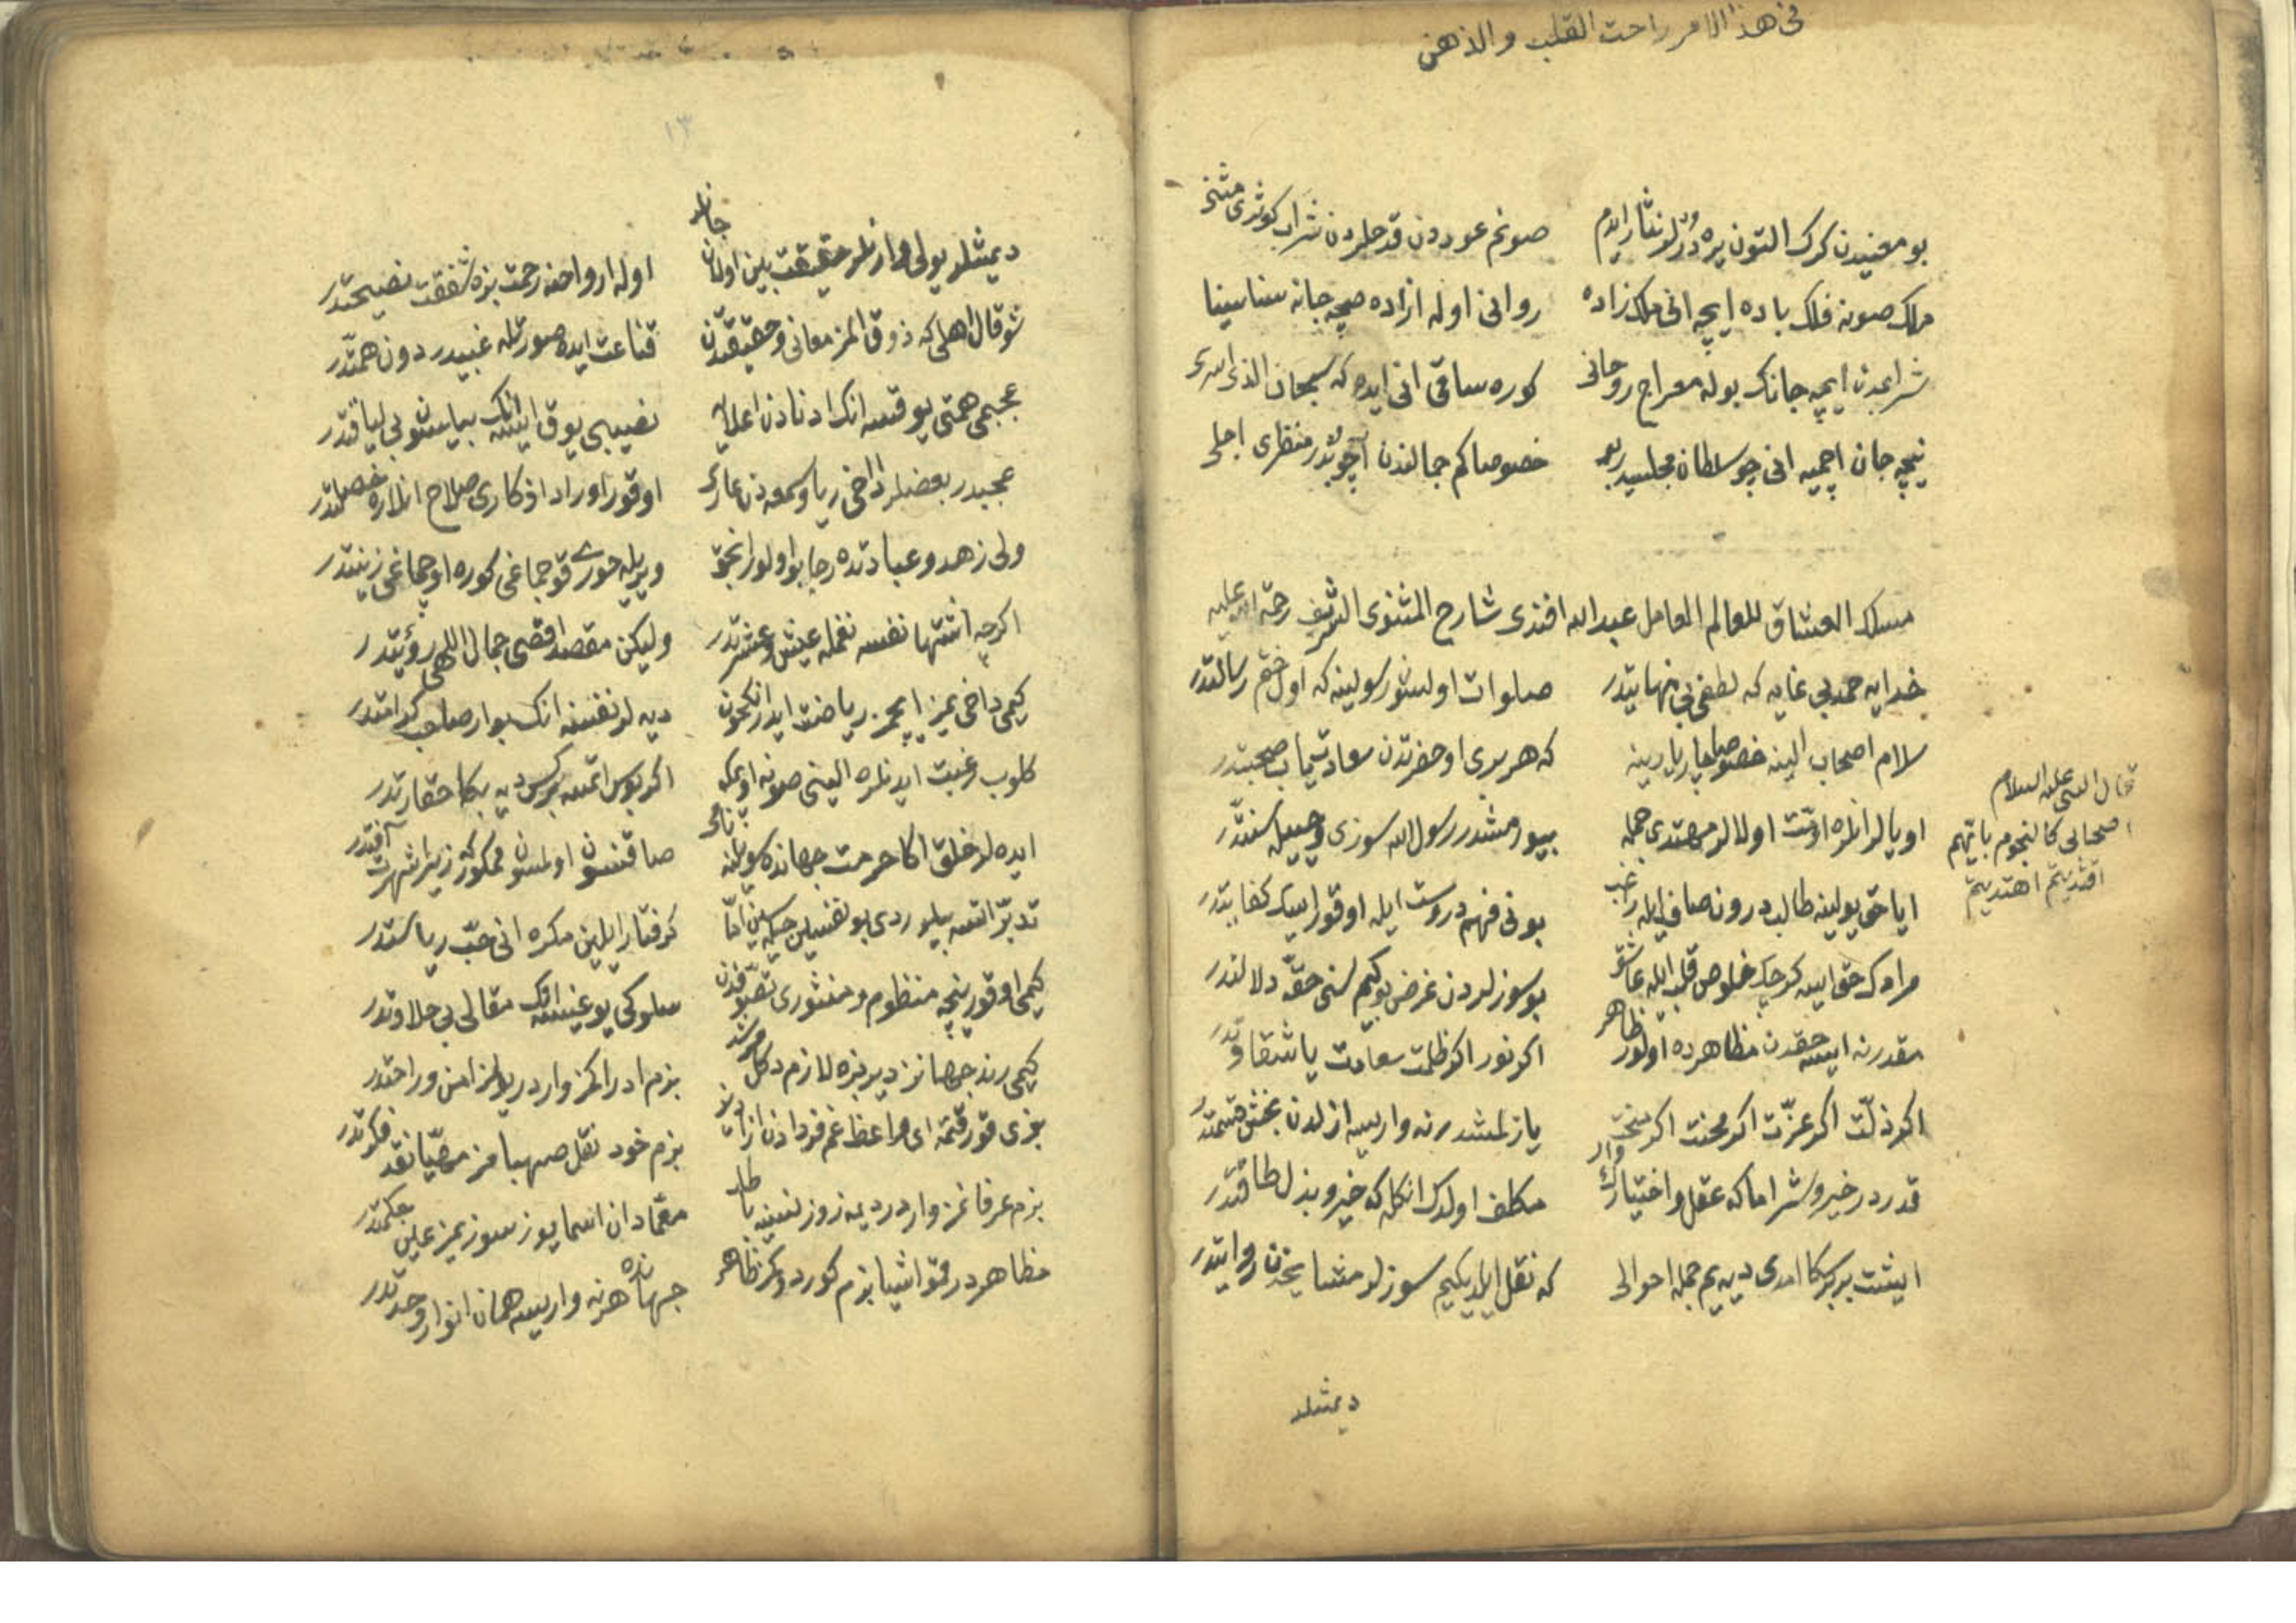 فی هذا الامر راحت القلب والذهن
بو معنیدن کرك التون یره درلر نثار ایدم صونم عوددن قدحلردن شراب کوثری
ملك صونه فلك باده ایچه انی ملك زاده روانی اوله ازاده صچه جانه سنا سینا
شرابندن ایچه جانك بوله معراج روحانی کوره ساقی انی ایده که سبحان الذی اسری
نیچه جان اچمیه انی چو سلطان مجلسیدر بو خصوصا کم جمالندن آچوبدر منظری اجلی
مسلك العشاق للعالم العامل عبد الله افندی شارح المثنوی الشریف رحمة الله علیه
خدایه حمد بی غایه که لطفی بی نهایتدر صلوات اولسون رسولینه که اول ختم رسالتدر
سلام اصحاب الینه خصوصا چار یارینه که هر بری او حضرتدن سعادتیاب صحبتدر
قال النبی علیه السلام
اصحابی کالنجوم بایهم
اقتدیتم اهتدیتم
اویالر انلره امت اولالر مهتدی جمله بیورمشدر رسول الله سوزی وحییله سنتدر
ایا حق یولینه طالب درون صاف ایله راغب بونی فهم درست ایله اوقورایسك کفایتدر
مرادك حق ایسه کرچك خلوص قلب ایله عاشق بو سوزلردن غرض بو کیم سنی حقه دلالتدر
مقدر نه ایسه حقدن مظاهرده اولور ظاهر اکر نور اکر ظلمت سعادت یا شقاوتدر
اکر ذلت اکر عزت اکر محنت اکر یازلمشدر نه واریسه ازلدن بخش قسمتدر
قدردر خیر و شر اما که عقل و اختیارك وار مکلف اولدك انکله که خیر و بذل طاقتدر
ایشت بر بر سکا امدی دیه یم جمله احوالی که نقل ایلدیکیم سوزلر مشایخدن روایتدر
دیمشلر
١٣
دیمشلر یولی وار انلر حقیقت بین اولان جانلر اوله ارواحنه رحمت بزه شفقت نصیحتدر
شو قال اهلی که ذوق المز معانی و حقیقتدن قناعت ایده صورتله غبیدر دون همتدر
عجبمی همتی یوقسه انك ادنادن اعلایه نصیبی یوق ایسه انك بیلسون بی لیاقتدر
عجبدر بعضلر داخی ریا و سمعه دن عاری اوقور اوراد اذکاری صلاح انلاره خصلتدر
ولی زهد و عبادتده رجا بو اولور انجق ویریله حوری قوجماغی کوره اوچماغی زینتدر
اکرچه اشتها نفسه نعمله عیش و عشرتدر ولیکن مقصد اقصی جمال اللهی رؤیتدر
کیمی داخی یمز ایچمز ریاضت ایدر انکچون دیه لر نفسنه انك بو ار صاحب کرامتدر
کلوب رغبت ایدنلره الینی صونه اویمکه اکر بوس اتمسه برکس دیه بکا حقارتدر
ایده لر خلق اکا حرمت جهانده سویلنه نامی صاقنسون اولمسون مذکور زیرا شهرت آفتدر
تدبر اتسه بیلوردی بو نفسیلن اما کرفتار ایلین مکره انی حب ریاستدر
کیمی اوقور نیچه منظوم و منثوری تصوفدن سلوکی یوغیسه انك مقالی بی حلاوتدر
کیمی رند جهانز دیر بزه لازم دکل مرشد بزم ادراکمز واردر یولمز امن و راحتدر
بزی قورقتمه ای واعظ غم فردادن بزم خود نقل صهبامز مهیا نقد فکرتدر
بزم عرفانمز واردر دیمه زوزلنسنه باطل معمادان اسمایوز سوزیمز عین حکمتدر
مظاهردر قمو اشیا بزم کوردوکمز ظاهر جهانده هر نه واریسه همان انوار وحدتدر